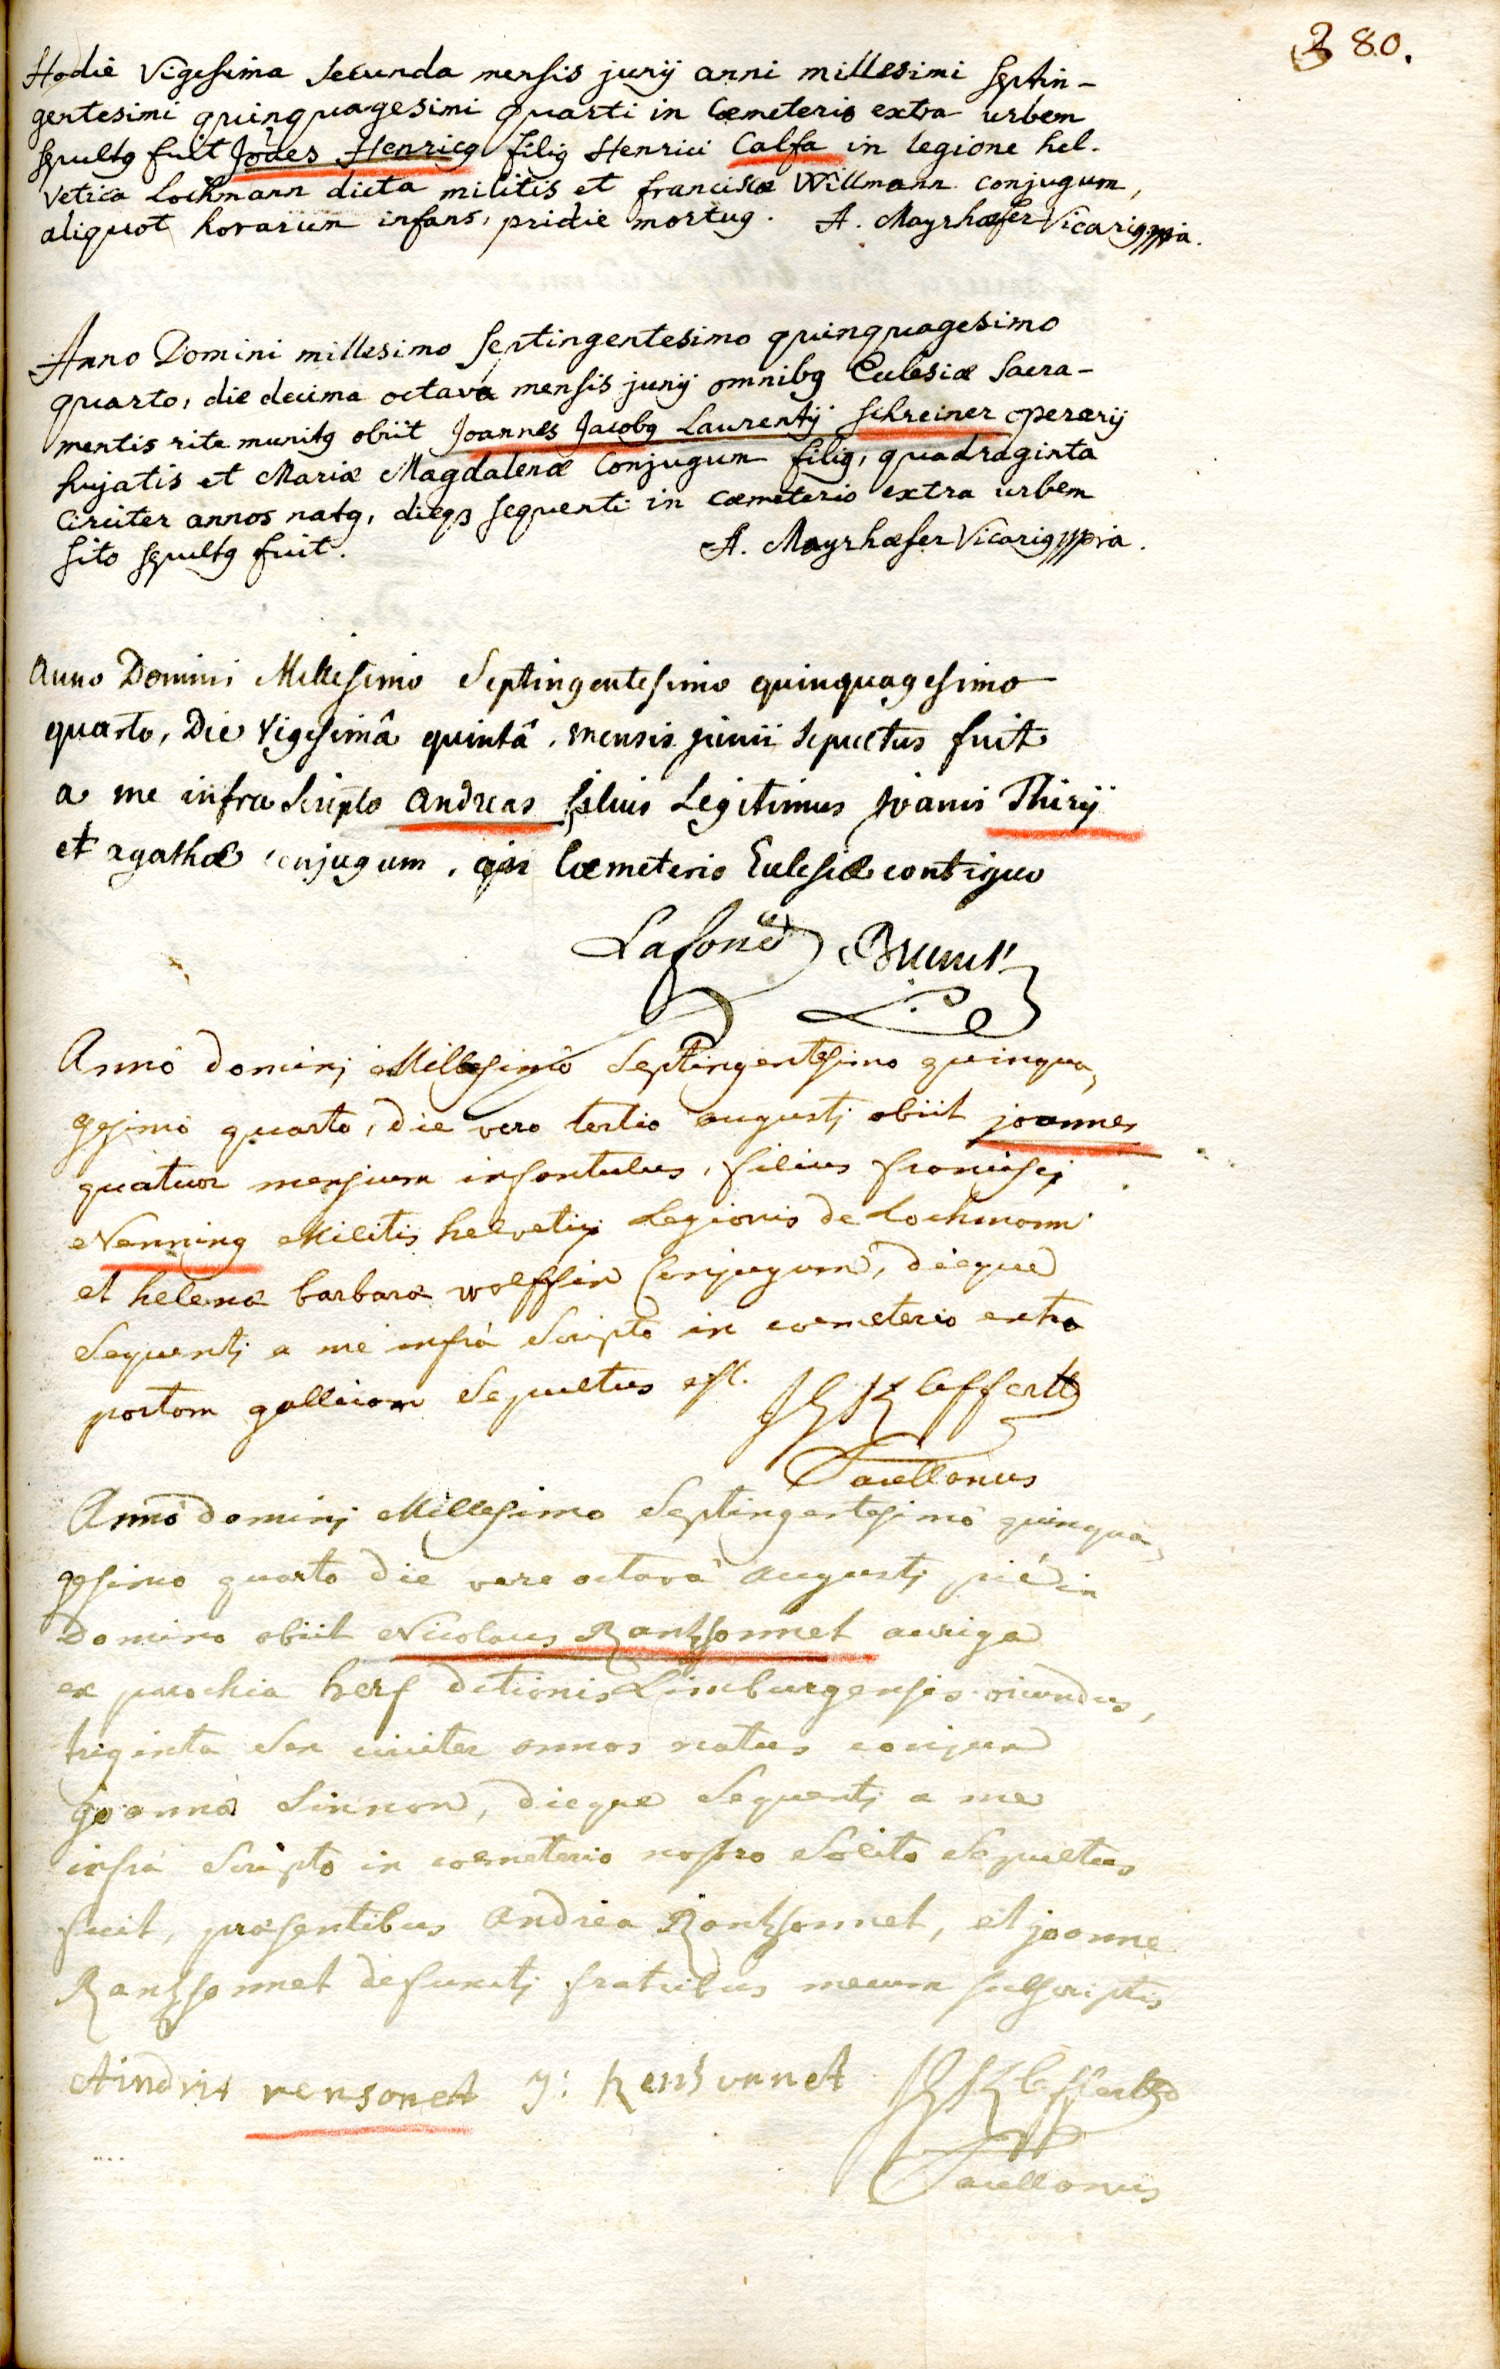 380.
Hodie Vigesima secunda mensis junij anni millesimi septin-
gentesimi quinquagesimi quarti in Cœmeterio extra urbem
sepultg fuit Joães Henricg filig Henrici Calfa in legione hel-
vetica Lochmann dicta militis et franciscæ Willmann conjugum,
aliquot horarum infans, pridie mortug. A. Mayrhæfer Vicarig mpria.
Anno Domini millesimo septingentesimo quinquagesimo
quarto, die decima octava mensis junij omnibg Eclesiæ sacra-
mentis rite munitg obiit Joannes Jacobg Laurentij schreiner operarij
hujatis et Mariæ Magdalenæ Conjugum filig, quadraginta
circiter annos natg, dieqz sequenti in cœmeterio extra urbem
sito sepultg fuit. A. Mayrhæfer Vicarig mpria.
Anno Domini Millesimo Septingentesimo quinquagesimo
quarto, Die Vigesimâ quintâ, mensis junii sepultus fuit
a me infra scripto andreas filius Legitimus joanis Thirÿ
et agathæ conjugum, in Cœmeterio Eclesiæ contiguo
Lafone Brunet
Anno dominj Millesimo Septingentesimo quinqua,
gesimo quarto, die vero tertio augustj obiit joannes
quatuor mensium infantulus, filius franciscj
Nenning Militis helvetij Legionis de Lochmann
et helenæ barbaræ wolffin Conjugum, dieque
Sequentj a me infrà Scripto in coemeterio extra
portam gallicam Sepultus est. JG Klaffert
Sacellanus
Anno dominj Millesimo Septingentesimo quinqua,
gesimo quarto die vero octavâ augustj piè in
Domino obiit Nicolaus Rantzsonnet auriga
ex parochia herf ditionis Limburgensis oriundus,
triginta sex circiter annos natus conjux
joannæ Sinnon, dieque Sequentj a me
infrà Scripto in coemeterio nostro Solito Sepultus
fuit, præsentibus andrea Rantzsonnet, et joanne
Rantzsonnet defunctj fratribus mecum subscriptis
Aindris rensonet J: Rensonnet JG Klaffert
Sacellanus